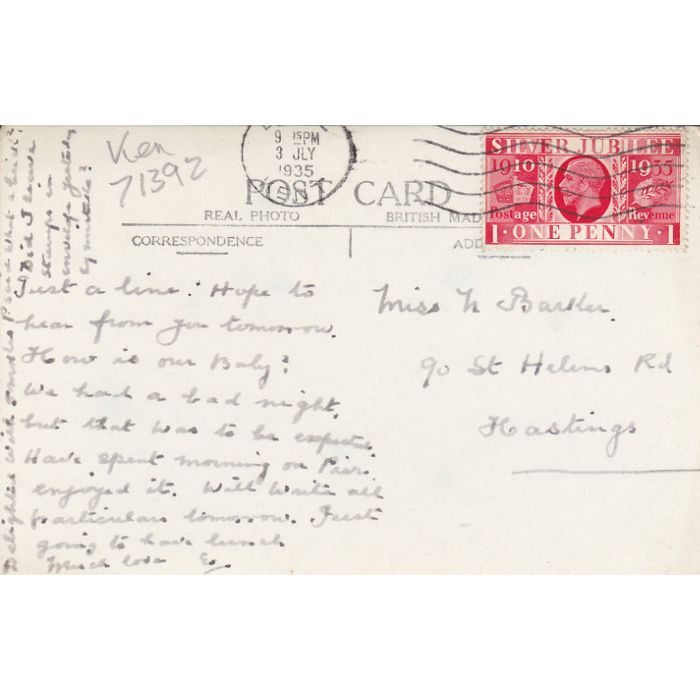 Ken
71392
9 15PM
3 JLY
1935
KENT
SILVER JUBILEE
1910 1935
Postage Revenue
1 · ONE PENNY · 1
POST CARD
REAL PHOTO BRITISH MAD
CORRESPONDENCE
ADD
Just a line. Hope to
hear from you tomorrow.
How is our Baby?
We had a bad night,
but that was to be expected.
Have spent morning on Pier.
enjoyed it. Will write all
particulars tomorrow. Just
going to have lunch
Much love E.
Miss N Barker
90 St Helens Rd
Hastings
Delighted with
what a
Did I leave
stamps in
envelope yesterday
by mistake?